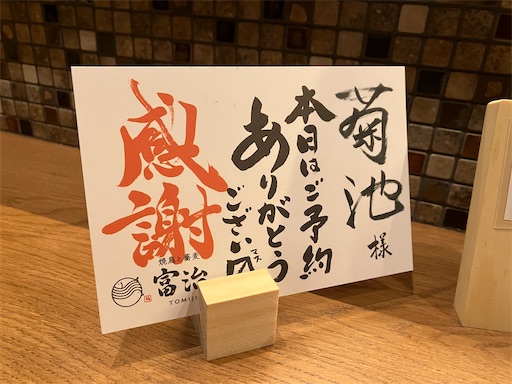 菊池様
本日はご予約
ありがとう
ございマス
感謝
焼鳥と蕎麦
富治